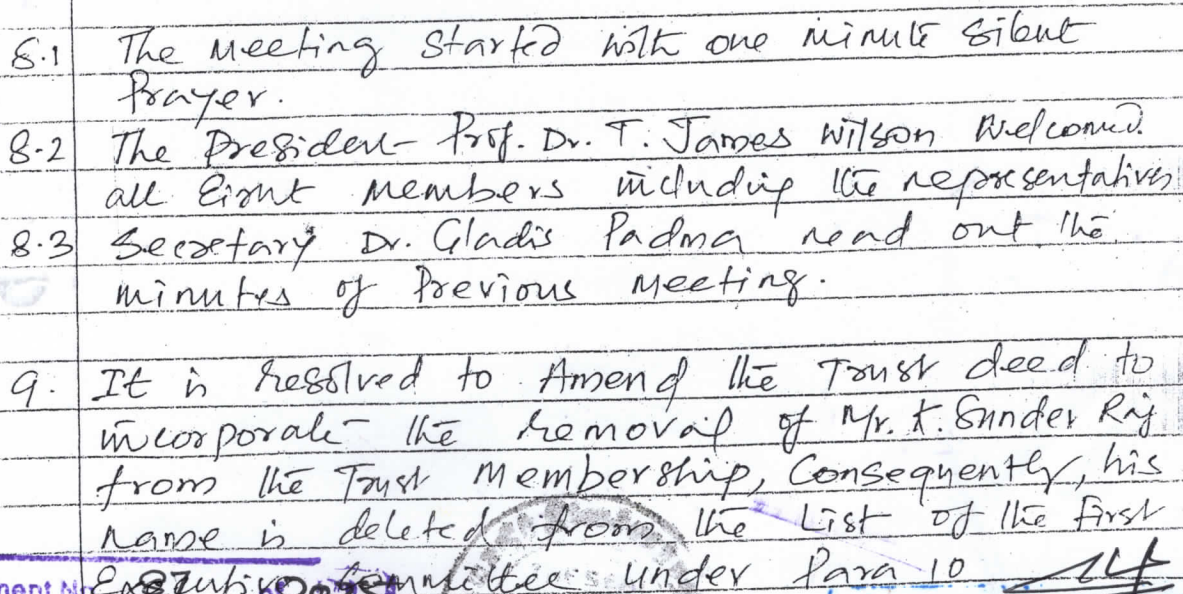 8.1 The Meeting started with one minute silent
Prayer.
8.2 The President Prof. Dr. T. James Wilson Welcomed
all Eight Members including the representatives
8.3 Secretary Dr. Gladis Padma read out the
minutes of Previous Meeting.
9. It is resolved to Amend the Trust deed to
incorporate the removal of Mr. K. Sunder Raj
from the Trust Membership, Consequently, his
name is deleted from the List of the first
Executive Committee under Para 10